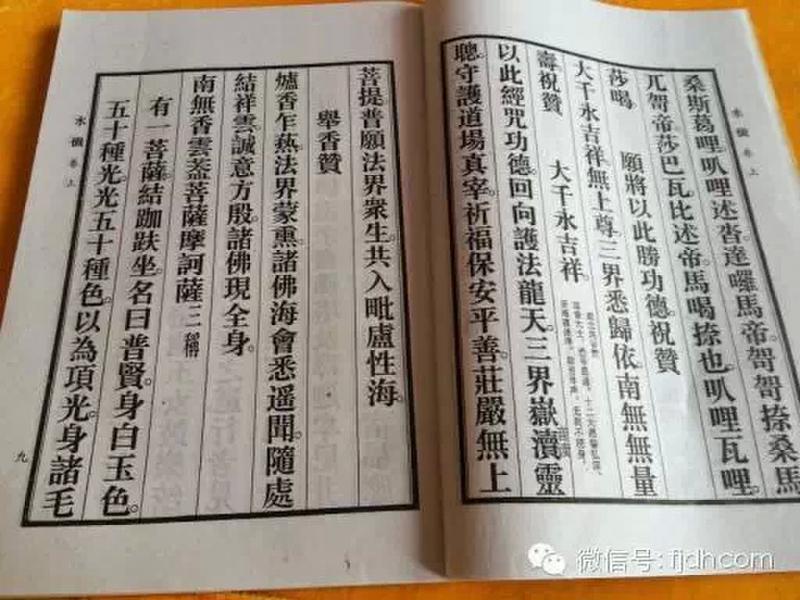 水懺 卷上
桑斯葛哩。叭哩述沓。達囉馬帝。哿哿捺桑馬
兀哿帝。莎巴瓦。比述帝。馬喝捺也。叭哩瓦哩。
莎喝 願將以此勝功德。祝贊
大千永吉祥。無上尊。三界悉歸依。南無無量
壽祝贊 大千永吉祥。
以此經咒功德。回向護法龍天。三界嶽瀆靈
聰。守護道場真宰。祈福保安平善。莊嚴無上
菩提。普願法界衆生。共入毗盧性海。
舉香贊
爐香乍爇。法界蒙熏。諸佛海會悉遥聞。隨處
結祥雲。誠意方殷。諸佛現全身。
南無香雲葢菩薩摩訶薩三稱
有一菩薩。結跏趺坐。名曰普賢。身白玉色。
五十種光。光五十種色。以為項光。身諸毛
水懺 卷上
九
微信号: fjdhcom